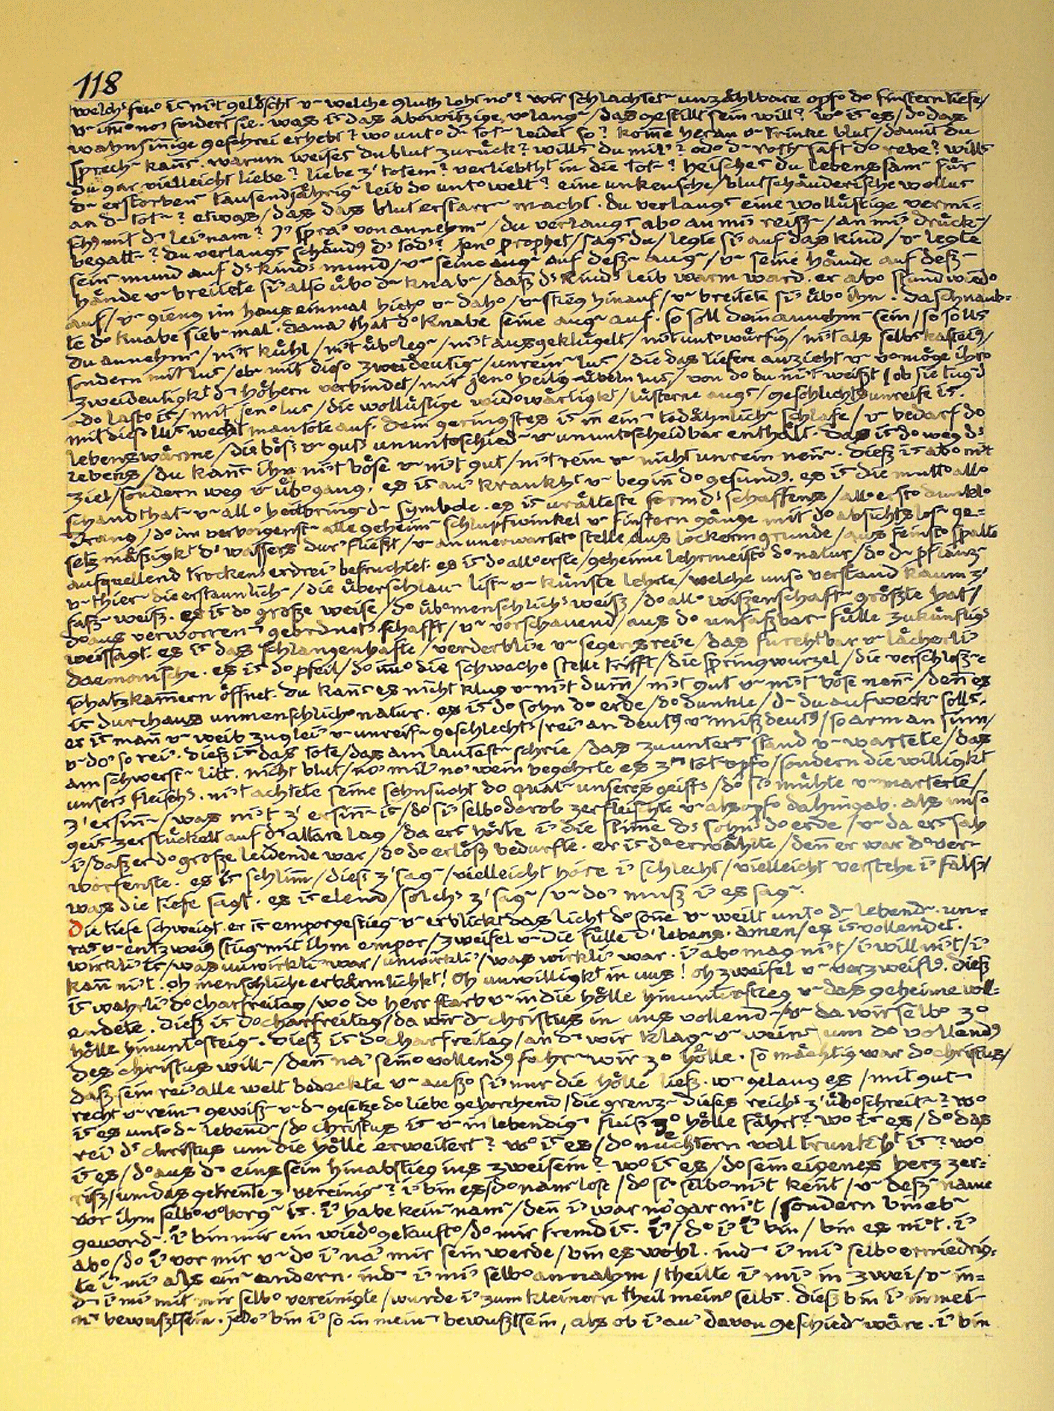 118
welch' feuo is nit gelöscht v welche gluth loht no'? wir schlachtet unzählbare opfo do finstern tiefe/
v imo no' fordert sie. was is das abowitzige volang/ das gestillt sein will? wo is es/ do das
wahnsinige geschrei erhebt? wo unto d tot leidet so? kome heran v trinke blut/ damit du
sprech kanst. warum weisest du blut zurück? wills du mil'? odo d roth saft do rebe? wills
du gar vielleicht liebe? liebe z' totem? verliebtht in die tot? heisches du lebenssam für
d erstorben tausendjährig leib do untowelt? eine unkeusche/ blutschänderische wollus
an d tot? etwas/ das das blut erstarr macht. du verlangs eine wollüstige vermi=
sch' mit d leinam? i' spra' von annehm/ du verlangs abo an mi' reiß/ an mi' drück/
begatt? du verlangs schänd' d' tod'? jeno prophet/ sags du/ legte si' auf das kind/ v legte
sein mund auf ds kinds mund/ v seine aug auf deß aug/ v seine hände auf deß
hände v breitete si' also übo d knab/ daß ds kinds leib warm ward. er abo stund wiedo
auf/ v gieng im haus einmal hieho v daho/ v stieg hinauf/ v breitete si' übo ihn. da schnaub=
te do knabe sieb mal. dana' that do knabe seine aug auf. so soll dein annehm sein/ so solls
du annehm/ nit kühl/ nit übolegt/ nit ausgeklügelt/ nit untowürfig/ nit als selbstkastei'/
sondern mit lus/ eb mit dieso zweideutig/ unrein lus/ die das tiefere anzieht v vermöge ihro
zweideutigkt d höhern verbindet/ mit jeno heilig-übeln lus/ von do du nit weißt/ ob sie tug'd
odo lasto is/ mit jeno lus/ die wollüstige widowärtigkt/ lüsterne angs/ geschlechts unreife is.
mit dieso lus weckt man tote auf. dein geringstes is in ein todähnlich schlafe/ v bedarf do
lebenswärme/ die bös v guts ununtoschied v ununtoscheidbar enthält. das is do weg ds
lebens/ du kanst ihn nit böse v nit gut/ nit rein v nicht unrein nen. dieß is abo nit
ziel/ sondern weg v übogang. es is au' krankht v begin do gesund'. es is die mutto allo
schandthat v allo heilbring d symbole. es is urälteste form d' schaffens/ alloersto dunklo
drang/ do im verborgenst alle geheim schlupfwinkel v finstern gänge mit do absichtslos ge=
setzmäßigkt d' wassers dur'fließt/ v an unerwarteto stelle aus lockerm grunde/ aus feinsto spalte
aufquellend trocken' erdrei' befruchtet. es is do alloerste/ geheime lehrmeisto do natur/ do d pflanz
v thier die erstaunlich/ die überschlau list v künste lehrte/ welche unso verstand kaum z'
faß weiß. es is do große weise/ do übomenschlichs weiß/ do allo wißenschaft größte hat/
do aus verworren' geordnets schafft/ v vorschauend/ aus do unfaßbar fülle zukünftigs
weissagt. es is das schlangenhafte/ verderbli' v segensrei'e/ das furchtbar v lächerli'
daemonische. es is do pfeil/ do imo die schwache stelle trifft/ die springwurzel/ die verschloß'e
schatzkamern öffnet. du kanst es nicht klug v nit dumm/ nit gut v nit böse nen/ den es
is durchaus unmenschlicho natur. es is do sohn do erde/ do dunkle/ d du aufweck solls.
er is man v weib zuglei' v unreif geschlechts/ rei' an deut' v mißdeut'/ so arm an sinn/
v do' so rei'. dieß is das tote/ das am lautest schrie/ das zuunterst stand v wartete/ das
am schwerst litt. nicht blut/ no' mil' no' wein begehrte es z' totopfo/ sondern die willigkt
unsers fleisch's. nit achtete seine sehnsucht do qual unseres geists/ do si' mühte v marterte/
z' ersin/ was nit z' ersin is/ do si' selbo darob zerfleischte v als opfo dahingab. als unso
geist zerstückelt auf d altare lag/ da ers hörte i' die stime ds sohns do erde/ v da ers sah
i'/ daß er do große leidende war/ do do erlös' bedurfte. er is do erwählte/ den er war do ver=
worfenste. es is schlim/ dieß z' sag/ vielleicht höre i' schlecht/ vielleicht verstehe i' fals'/
was die tiefe sagt. es is elend/ solch's z' sag/ v do' muß i' es sag.
Die tiefe schweigt. er is emporgestieg v erblickt das licht do sone v weilt unto d lebend. un=
ras v entzwei' stieg mit ihm empor/ zweifel v die fülle d' lebens. amen/ es is vollendet.
wirkli' is/ was unwirkli' war/ unwirkli'/ was wirkli' war. i' abo mag nit/ i' will nit/ i'
kan nit. oh menschliche erbärmlichkt! oh unwilligkt in uns! oh zweifel v verzweifl'. dieß
is wahrli' do charfreitag/ wo do herr starb v in die hölle hinunterstieg v das geheime voll=
endete. dieß is do charfreitag/ da wir d christus in uns vollend v da wir selbo zo
hölle hinuntosteig. dieß is do charfreitag/ an d wir klag v wein um do vollend'
des christus will/ den na' seino vollend' fahr wir zo hölle. so mächtig war do christus/
daß sein rei' alle welt bedeckte v außo si' nur die hölle ließ. wo gelang es/ mit gut
recht v rein gewiß v d gesetze do liebe gehorchend/ die grenz dieses reich's z' überschreit? wo
is es unto d lebend/ do christus is v in lebendig' fleisch zo hölle fährt? wo is es/ do das
rei' d' christus um die hölle erweitert? wo is es/ do nüchtern voll trunkht is? wo
is es/ do aus d einssein hinabstieg ins zweisein? wo is es/ do sein eigenes herz zer=
riß/ um das getrente z' vereinig? i' bin es/ do namlose/ do si' selbo nit kent/ v deß name
vor ihm selbo veborg is. i' habe kein nam/ den i' war no' gar nit/ sondern bin eb
geword. i' bin mir ein wiedogetaufto/ do mir fremd is. i'/ do i' i' bin/ bin es nit. i'
abo/ do i' vor mir v do i' na' mir sein werde/ bin es wohl. ind i' mi' selbo erniedrig=
te i' mi' als ein andern. ind i' mi' selbo annahm/ theilte i' mi' in zwei/ v in=
d i' mi' mit mir selbo vereinigte/ wurde i' zum kleinern theil meino selbs. dieß bin i' in mei=
n bewußtsein. jedo' bin i' so in mein bewußtsein, als ob i' au' davon geschied wäre. i' bin